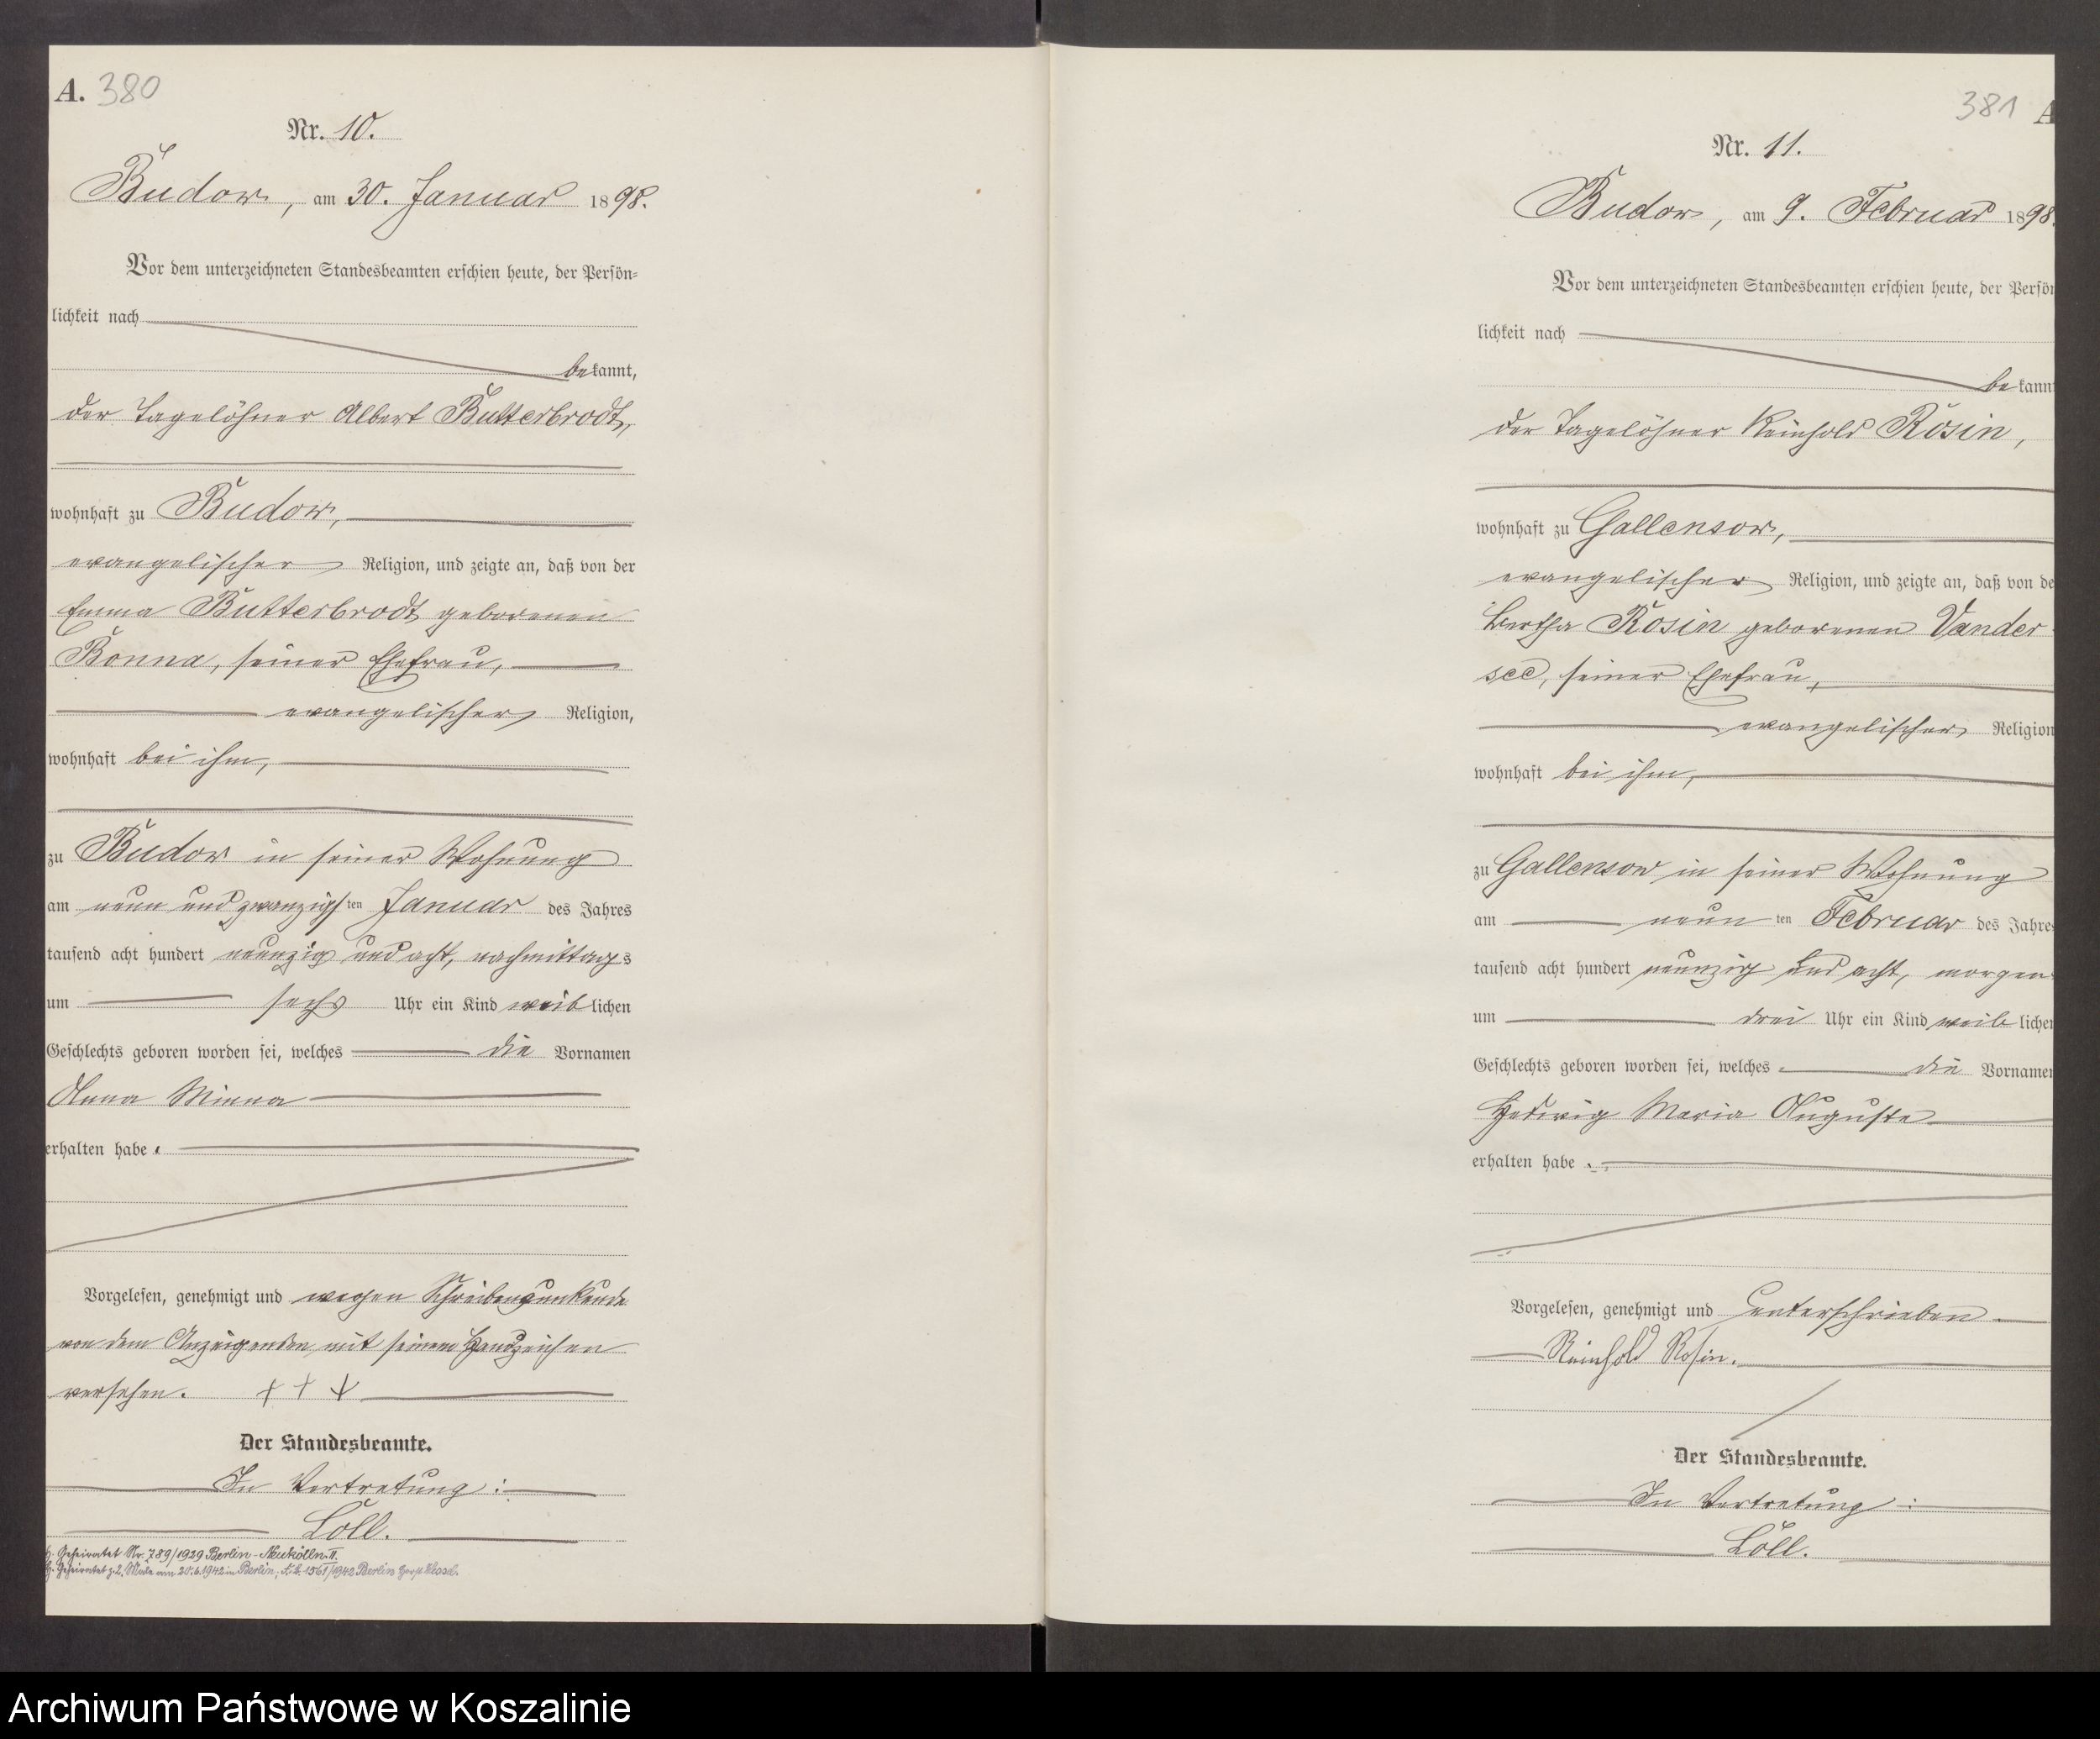 A. 380
Nr. 10.
Budow, am 30. Januar 1898.
Vor dem unterzeichneten Standesbeamten erschien heute, der Persön-
lichkeit nach
bekannt,
der Tagelöhner Albert Butterbrodt,
wohnhaft zu Budow,
evangelischer Religion, und zeigte an, daß von der
Emma Butterbrodt geborenen
Bonna, seiner Ehefrau,
evangelischer Religion,
wohnhaft bei ihm,
zu Budow in seiner Wohnung
am neun und zwanzigsten Januar des Jahres
tausend acht hundert neunzig und acht, nachmittags
um sechs Uhr ein Kind weiblichen
Geschlechts geboren worden sei, welches die Vornamen
Anna Minna
erhalten habe.
Vorgelesen, genehmigt und wegen Schreibensunkunde
von dem Anzeigenden mit seinem Handzeichen
versehen. + + +
Der Standesbeamte.
In Vertretung:
Löll.
Geheiratet Nr. 789/1929 Berlin-Neukölln II.
Geheiratet z. 2. Male am 20.6.1942 in Berlin, 1561/1942 Berlin
381 A
Nr. 11.
Budow, am 9. Februar 1898.
Vor dem unterzeichneten Standesbeamten erschien heute, der Persön
lichkeit nach
bekann
der Tagelöhner Reinhold Rosin,
wohnhaft zu Gallensow,
evangelischer Religion, und zeigte an, daß von de
Bertha Rosin geborenen Vander
see, seiner Ehefrau,
evangelischer Religion
wohnhaft bei ihm,
zu Gallensow in seiner Wohnung
am neunten Februar des Jahres
tausend acht hundert neunzig und acht, morgen
um drei Uhr ein Kind weiblichen
Geschlechts geboren worden sei, welches die Vornamen
Hedwig Maria Auguste
erhalten habe.
Vorgelesen, genehmigt und unterschrieben.
Reinhold Rosin.
Der Standesbeamte.
In Vertretung:
Löll.
Archiwum Państwowe w Koszalinie